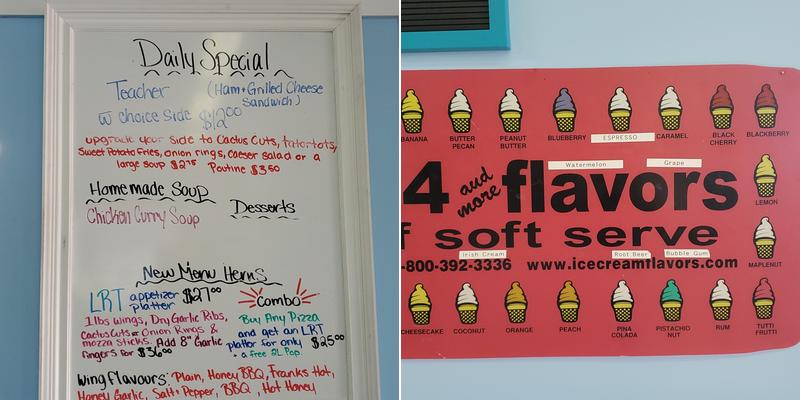 Daily Special
Teacher (Ham + Grilled Cheese
Sandwich)
w choice side $12⁰⁰
upgrade your side to Cactus Cuts, tatortots,
Sweet Potato Fries, onion rings, caeser salad or a
large soup $2⁷⁵ Poutine $3⁵⁰
Homemade Soup
Desserts
Chicken Curry Soup
New Menu Items
LRT appetizer $27⁰⁰
platter
1 lbs wings, Dry Garlic Ribs,
Cactus Cuts or Onion Rings &
mozza sticks. Add 8" Garlic
fingers for $36⁰⁰
Combo
Buy Any Pizza
and get an LRT
platter for only $25⁰⁰
+ a free 2L Pop.
Wing flavours: Plain, Honey BBQ, Franks Hot,
Honey Garlic, Salt + Pepper, BBQ, Hot Honey
BANANA
BUTTER
PECAN
PEANUT
BUTTER
BLUEBERRY
ESPRESSO
CARAMEL
BLACK
CHERRY
BLACKBERRY
Watermelon
Grape
4 and
more flavors
LEMON
f soft serve
MAPLENUT
Irish Cream
Root Beer
Bubble Gum
-800-392-3336 www.icecreamflavors.com
CHEESECAKE
COCONUT
ORANGE
PEACH
PINA
COLADA
PISTACHIO
NUT
RUM
TUTTI
FRUTTI